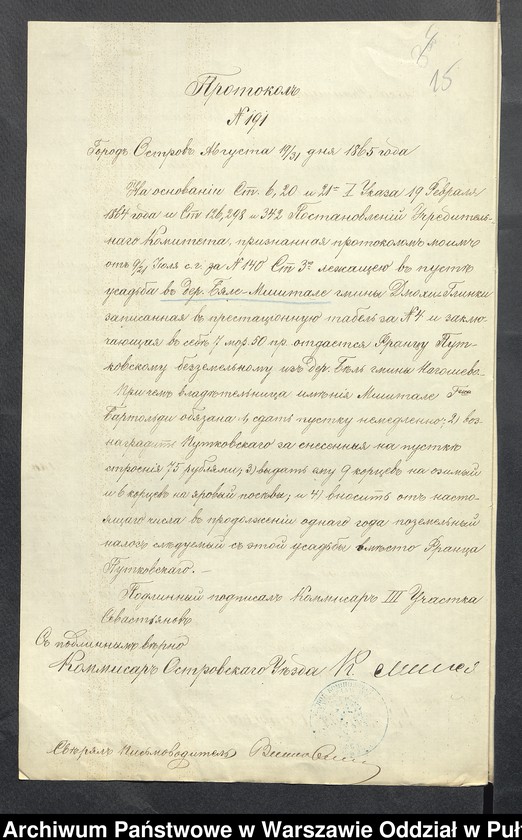 15
Протоколъ
№ 191
Городъ Островъ Августа 19/31 дня 1865 года
На основаніи Ст. 6, 20 и 21й I Указа 19 Февраля
1864 года и Ст 126, 298 и 342 Постановленій Учредитель-
наго Комитета, признанная протоколомъ моимъ
отъ 9/21 Іюля с.г. за № 140 Ст 3й лежащею въ пустѣ
усадьба въ дер. Бяле-Мишталѣ гмины Дмохи-Глинки
записанная въ престаціонную табель за № 4 и заклю-
чающая въ себѣ 7 мор. 50 пр. отдается Францу Пут-
ковскому безземельному изъ дер. Бѣль гмины Нагошево.
При чемъ владѣтельница имѣнія Мишталѣ Гжа
Бартольди обязана 1, сдать пустку немедленно; 2) воз-
наградить Путковскаго за снесенныя на пусткѣ
строенія 75 рублями; 3) выдать ему 9 корцевъ на озимый
и 6 корцевъ на яровый посѣвы; и 4) вносить отъ насто-
ящаго числа въ продолженіи однаго года поземельный
налогъ слѣдуемый съ этой усадьбы вмѣсто Франца
Путковскаго. —
Подлинный подписалъ Коммисаръ III Участка
Севастьяновъ
Съ подлиннымъ вѣрно
Коммисаръ Островскаго Уѣзда К.
Свѣрялъ Письмоводитель
Archiwum Państwowe w Warszawie Oddział w Puł